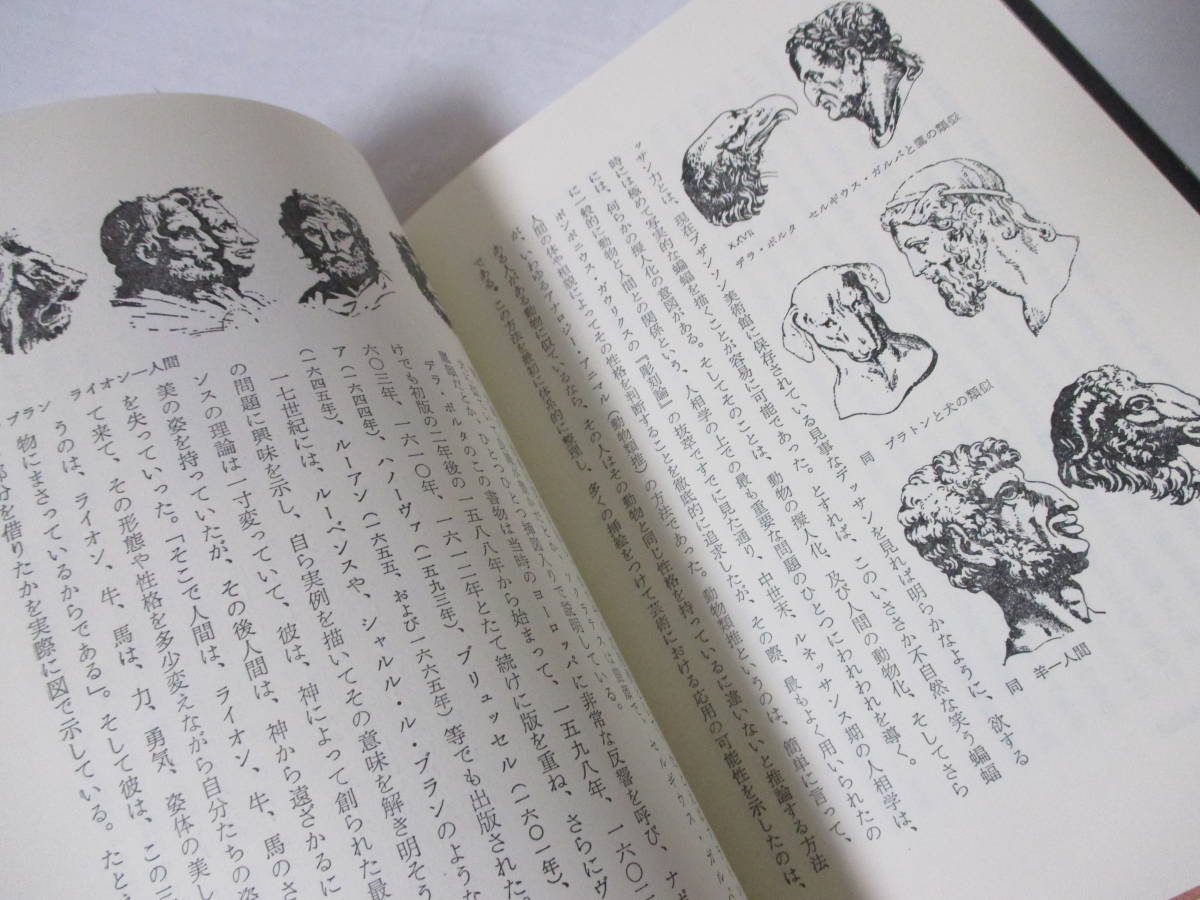 XXVII
デラ・ポルタ　セルギウス・ガルバと鷹の類似
同　プラトンと犬の類似
同　羊―人間
ッサン力とは、現在ブザンソン美術館に保存されている見事なデッサンを見れば明らかなように、欲する
時には極めて写実的な蝙蝠を描くことが容易に可能であった。とすれば、このいささか不自然な笑う蝙蝠
には、何らかの擬人化の意図がある。そしてそのことは、動物の擬人化、及び人間の動物化、そしてさら
に一般的に動物と人間との関係という、人相学の上での最も重要な問題のひとつにわれわれを導く。
ポンポニウス・ガウリクスの『彫刻論』の抜萃ですでに見た通り、中世末、ルネッサンス期の人相学は、
人間の体や相貌によってその性格を判断することを徹底的に追求したが、その際、最もよく用いられたの
が、いわゆるアナロジー・アニマル（動物類推）の方法であった。動物類推というのは、簡単に言って、
ある人がある動物に似ているなら、その人はその動物と同じ性格を持っているに違いないと推論する方法
である。この方法を最初に体系的に整理し、多くの挿絵をつけて芸術における応用の可能性を示したのは、
ひとつひとつ挿図入りで説明している。
デラ・ポルタのこの書物は当時のヨーロッパに非常な反響を呼び、ナポ
けでも初版の二年後の一五八八年から始まって、一五九八年、一六〇二
六〇三年、一六一〇年、一六一二年とたて続けに版を重ね、さらにヴ
ア（一六四四年）、ハノーヴァ（一五九三年）、ブリュッセル（一六〇一年）、
（一六四五年）、ルーアン（一六五五、および一六六五年）等でも出版された。
一七世紀には、ルーベンスや、シャルル・ル・ブランのような
の問題に興味を示し、自ら実例を描いてその意味を解き明そう
ンスの理論は一寸変っていて、彼は、神によって創られた最
美の姿を持っていたが、その後人間は、神から遠ざかるに
を失っていった。「そこで人間は、ライオン、牛、馬のさ
て来て、その形態や性格を多少変えながら自分たちの姿
うのは、ライオン、牛、馬は、力、勇気、姿体の美し
物にまさっているからである」。そして彼は、この三
部分を借りたかを実際に図で示している。たとえ
ブラン　ライオン―人間